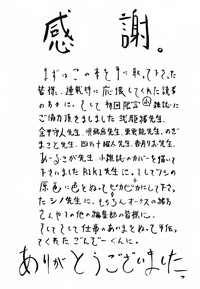 感謝。
まずはこの本を手に取って下さった
皆様、連載時に応援してくれた読者
の方々に。そして初回限定小雑誌に
ご協力頂きました
先生、
金平守人先生、
先生、
先生、のぎ
まこと先生、四万十曜太先生、香月りお先生、
あーぶる先生、小雑誌のカバーを描いて
下さいましたRIKI先生に。そしてワシの
原色に色をぬってピカピカにして下さっ
たシノ先生に。もちろんオークスの緒方
さんやその他の編集部の皆様に。
そしてそして仕事のあいまをぬって手伝っ
てくれたごんどーくんに。
ありがとうございました。